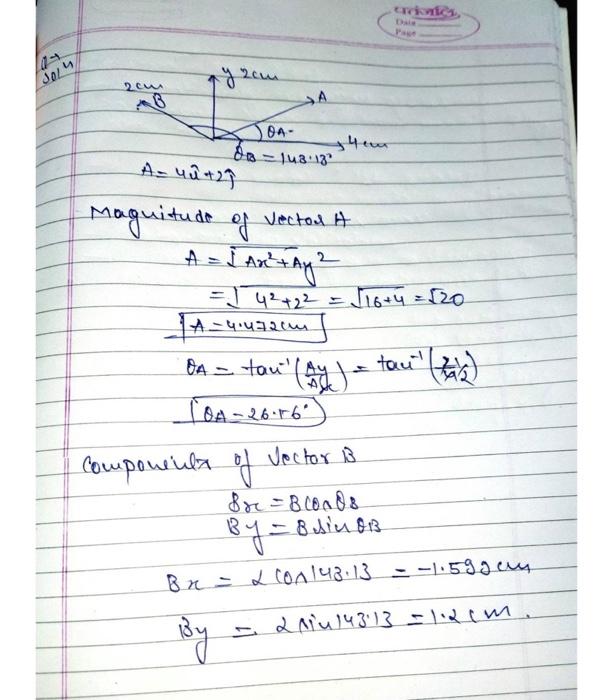 पतंजलि
Date
Page
Q→
Solⁿ
y 2cm
2cm
B
A
θA
4cm
θB = 143.13°
A = 4î+2ĵ
Magnitude of vector A
A = √Ax²+Ay²
= √4²+2² = √16+4 = √20
A = 4.472cm
θA = tan⁻¹(Ay/Ax) = tan⁻¹(2/4)
θA = 26.56°
Components of Vector B
Bx = B cos θB
By = B sin θB
Bx = 2 cos 143.13 = -1.599 cm
By = 2 sin 143.13 = 1.2 cm.